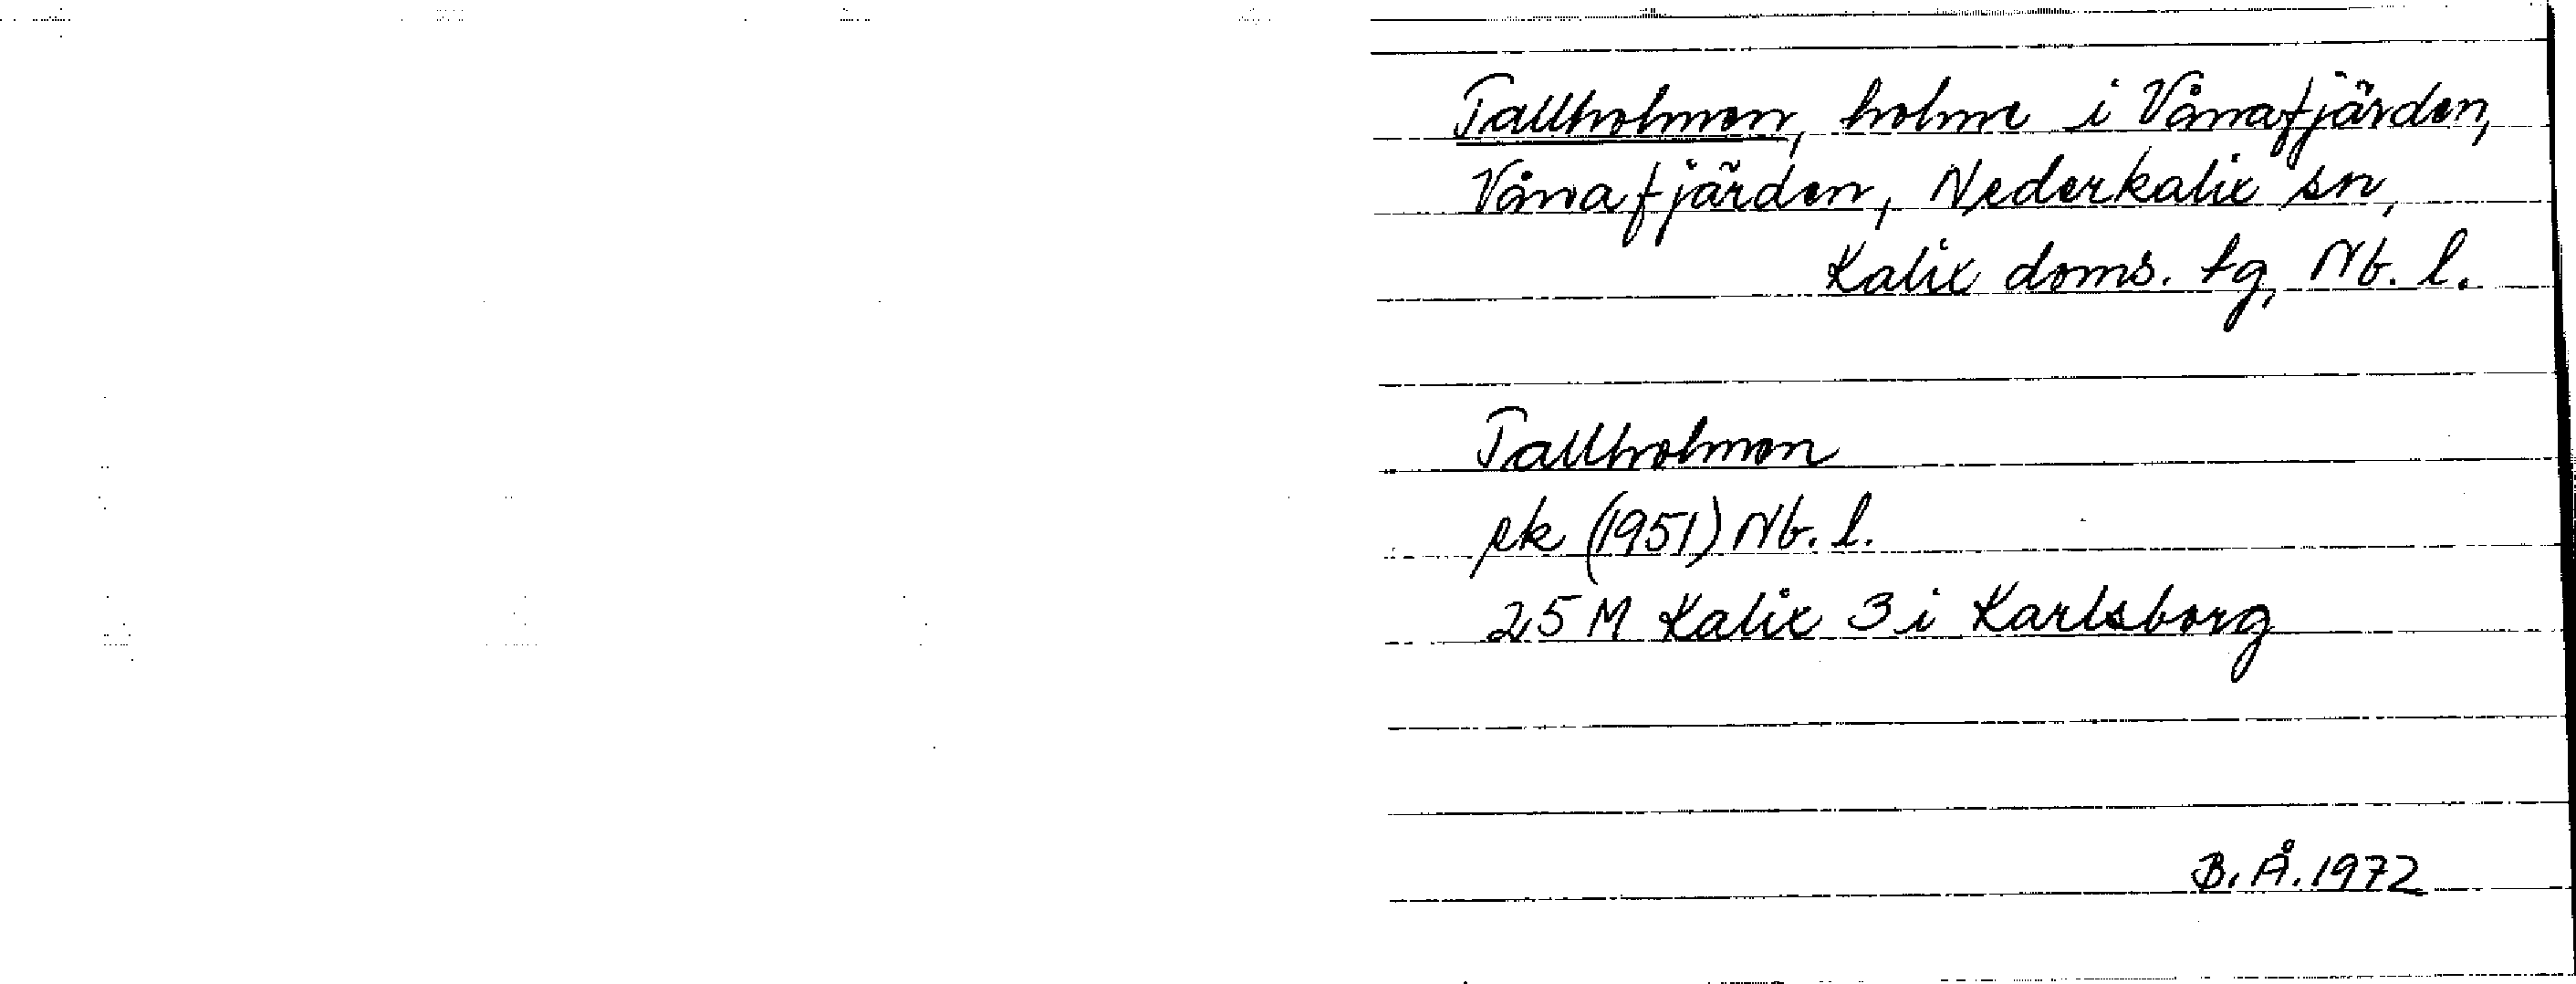 Tallholmen, holme i Vånafjärden,
Vånafjärden, Nederkalix sn,
Kalix doms. tg, Nb. l.
Tallholmen
ek (1951) Nb. l.
25 M Kalix 3 i Karlsborg
B. Å. 1972